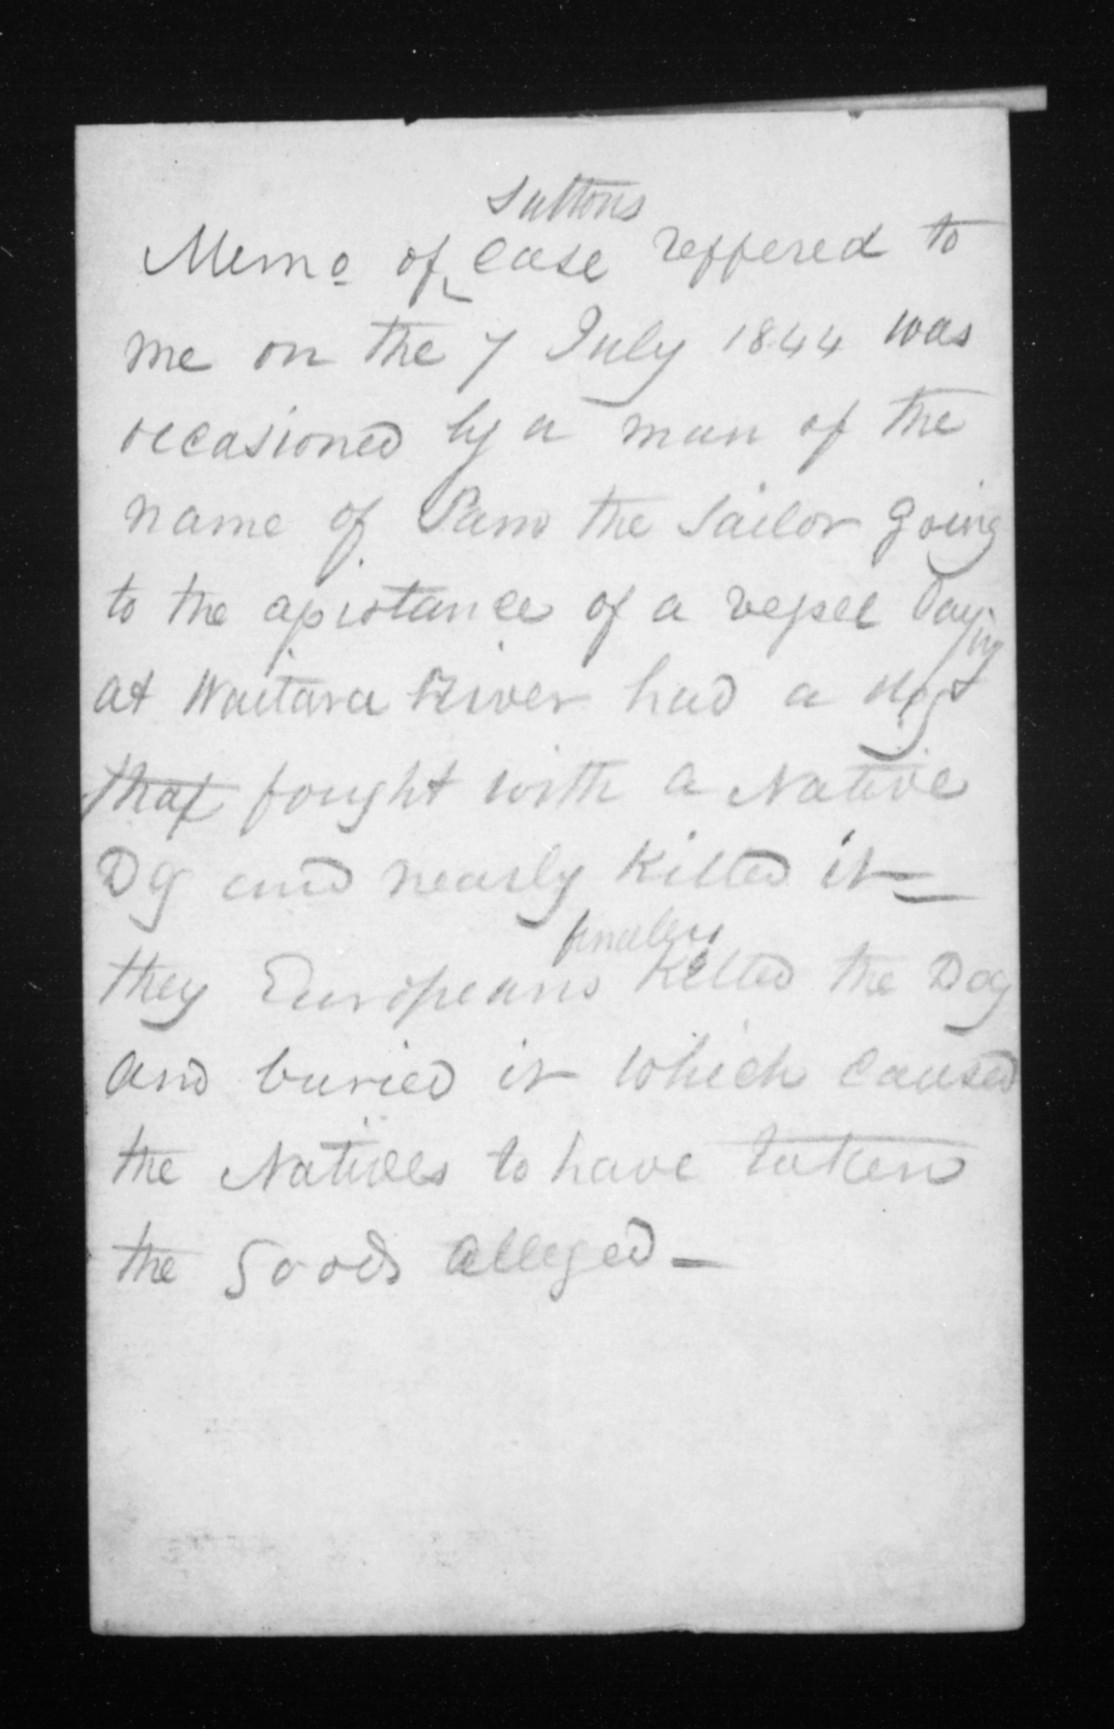 Suttons
Memo of case reffered to
me on the 7 July 1844 was
occasioned by a man of the
name of Sam the Sailor going
to the assistance of a vessel laying
at Waitara River had a dog
that fought with a Native
Dg and nearly killed it —
finally
they Europeans killed the Dog
and buried it which caused
the Natives to have taken
the Goods alleged —